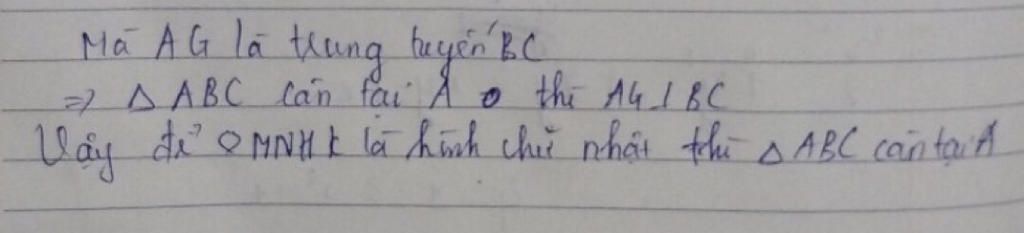 Mà AG là trung tuyến BC
=> △ ABC cân tại A thì AG ⊥ BC
Vậy để ◇ MNHK là hình chữ nhật thì △ ABC cân tại A